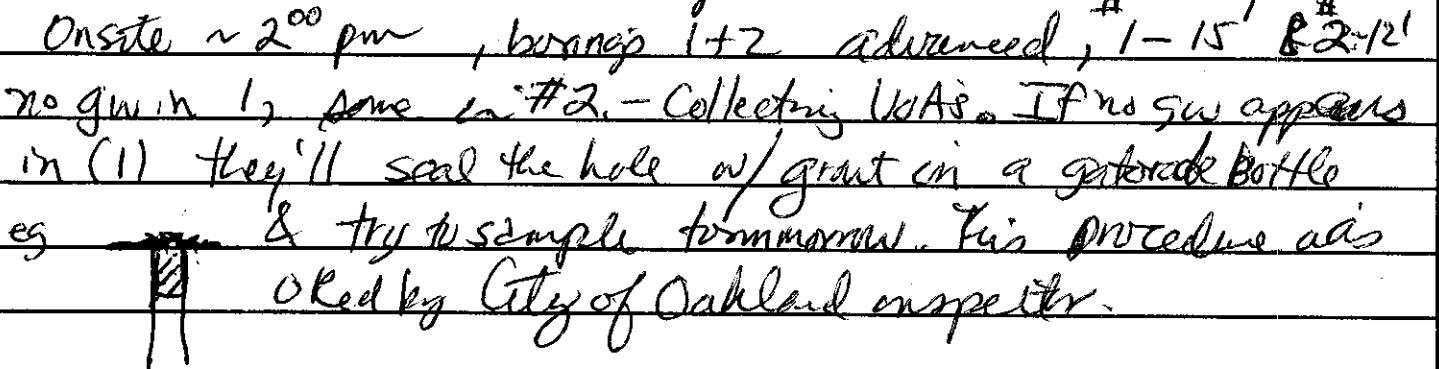 Onsite ~ 2⁰⁰ pm, borings 1+2 advanced, #1-15' & #2-12'
no gw in 1, some in #2. - Collecting VOAs. If no gw appears
in (1) they'll seal the hole w/ grout in a gatorade bottle
eg & try to sample tommorrow. This procedure was
OKed by City of Oakland inspector.